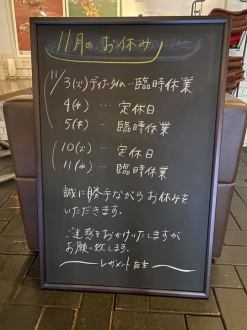 11月の お休み
11/3(火) ディナータイム… 臨時休業
4(水) … 定休日
5(木) … 臨時休業
10(火) … 定休日
11(水) … 臨時休業
誠に勝手ながら お休みを
いただきます。
ご迷惑をおかけいたしますが
お願い致します。
レガメント